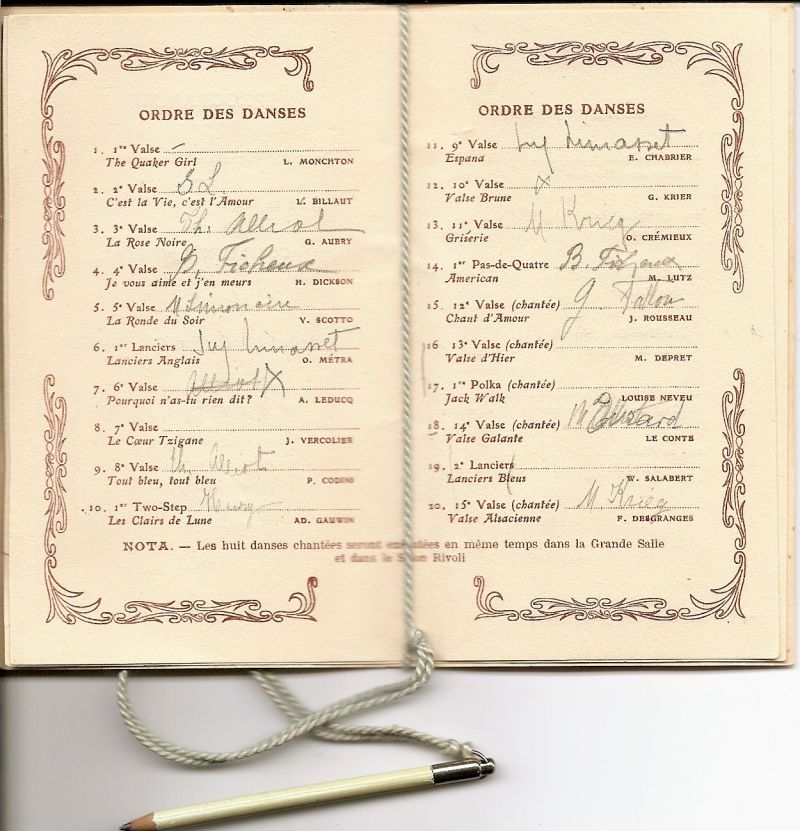 ORDRE DES DANSES
1. 1re Valse
The Quaker Girl L. MONCHTON
2. 2e Valse S L
C'est la Vie, c'est l'Amour L. BILLAUT
3. 3e Valse Th. Alliot
La Rose Noire G. AUBRY
4. 4e Valse Ficheux
Je vous aime et j'en meurs H. DICKSON
5. 5e Valse M Simonaire
La Ronde du Soir V. SCOTTO
6. 1er Lanciers Limasset
Lanciers Anglais O. MÉTRA
7. 6e Valse X
Pourquoi n'as-tu rien dit? A. LEDUCQ
8. 7e Valse
Le Cœur Tzigane J. VERCOLIER
9. 8e Valse Th. Alliot
Tout bleu, tout bleu P. CODINI
10. 1er Two-Step
Les Clairs de Lune AD. GAUWIN
ORDRE DES DANSES
11. 9e Valse Limasset
Espana E. CHABRIER
12. 10e Valse X
Valse Brune G. KRIER
13. 11e Valse M Krieg
Griserie O. CRÉMIEUX
14. 1er Pas-de-Quatre B. Ficheux
American M. LUTZ
15. 12e Valse (chantée) G. Fallou
Chant d'Amour J. ROUSSEAU
16 13e Valse (chantée)
Valse d'Hier M. DEPRET
17. 1re Polka (chantée)
Jack Walk LOUISE NEVEU
18. 14e Valse (chantée) M
Valse Galante LE CONTE
19. 2e Lanciers
Lanciers Bleus W. SALABERT
20. 15e Valse (chantée) M Krieg
Valse Alsacienne F. DESGRANGES
NOTA. — Les huit danses chantées seront exécutées en même temps dans la Grande Salle
et dans le Salon Rivoli